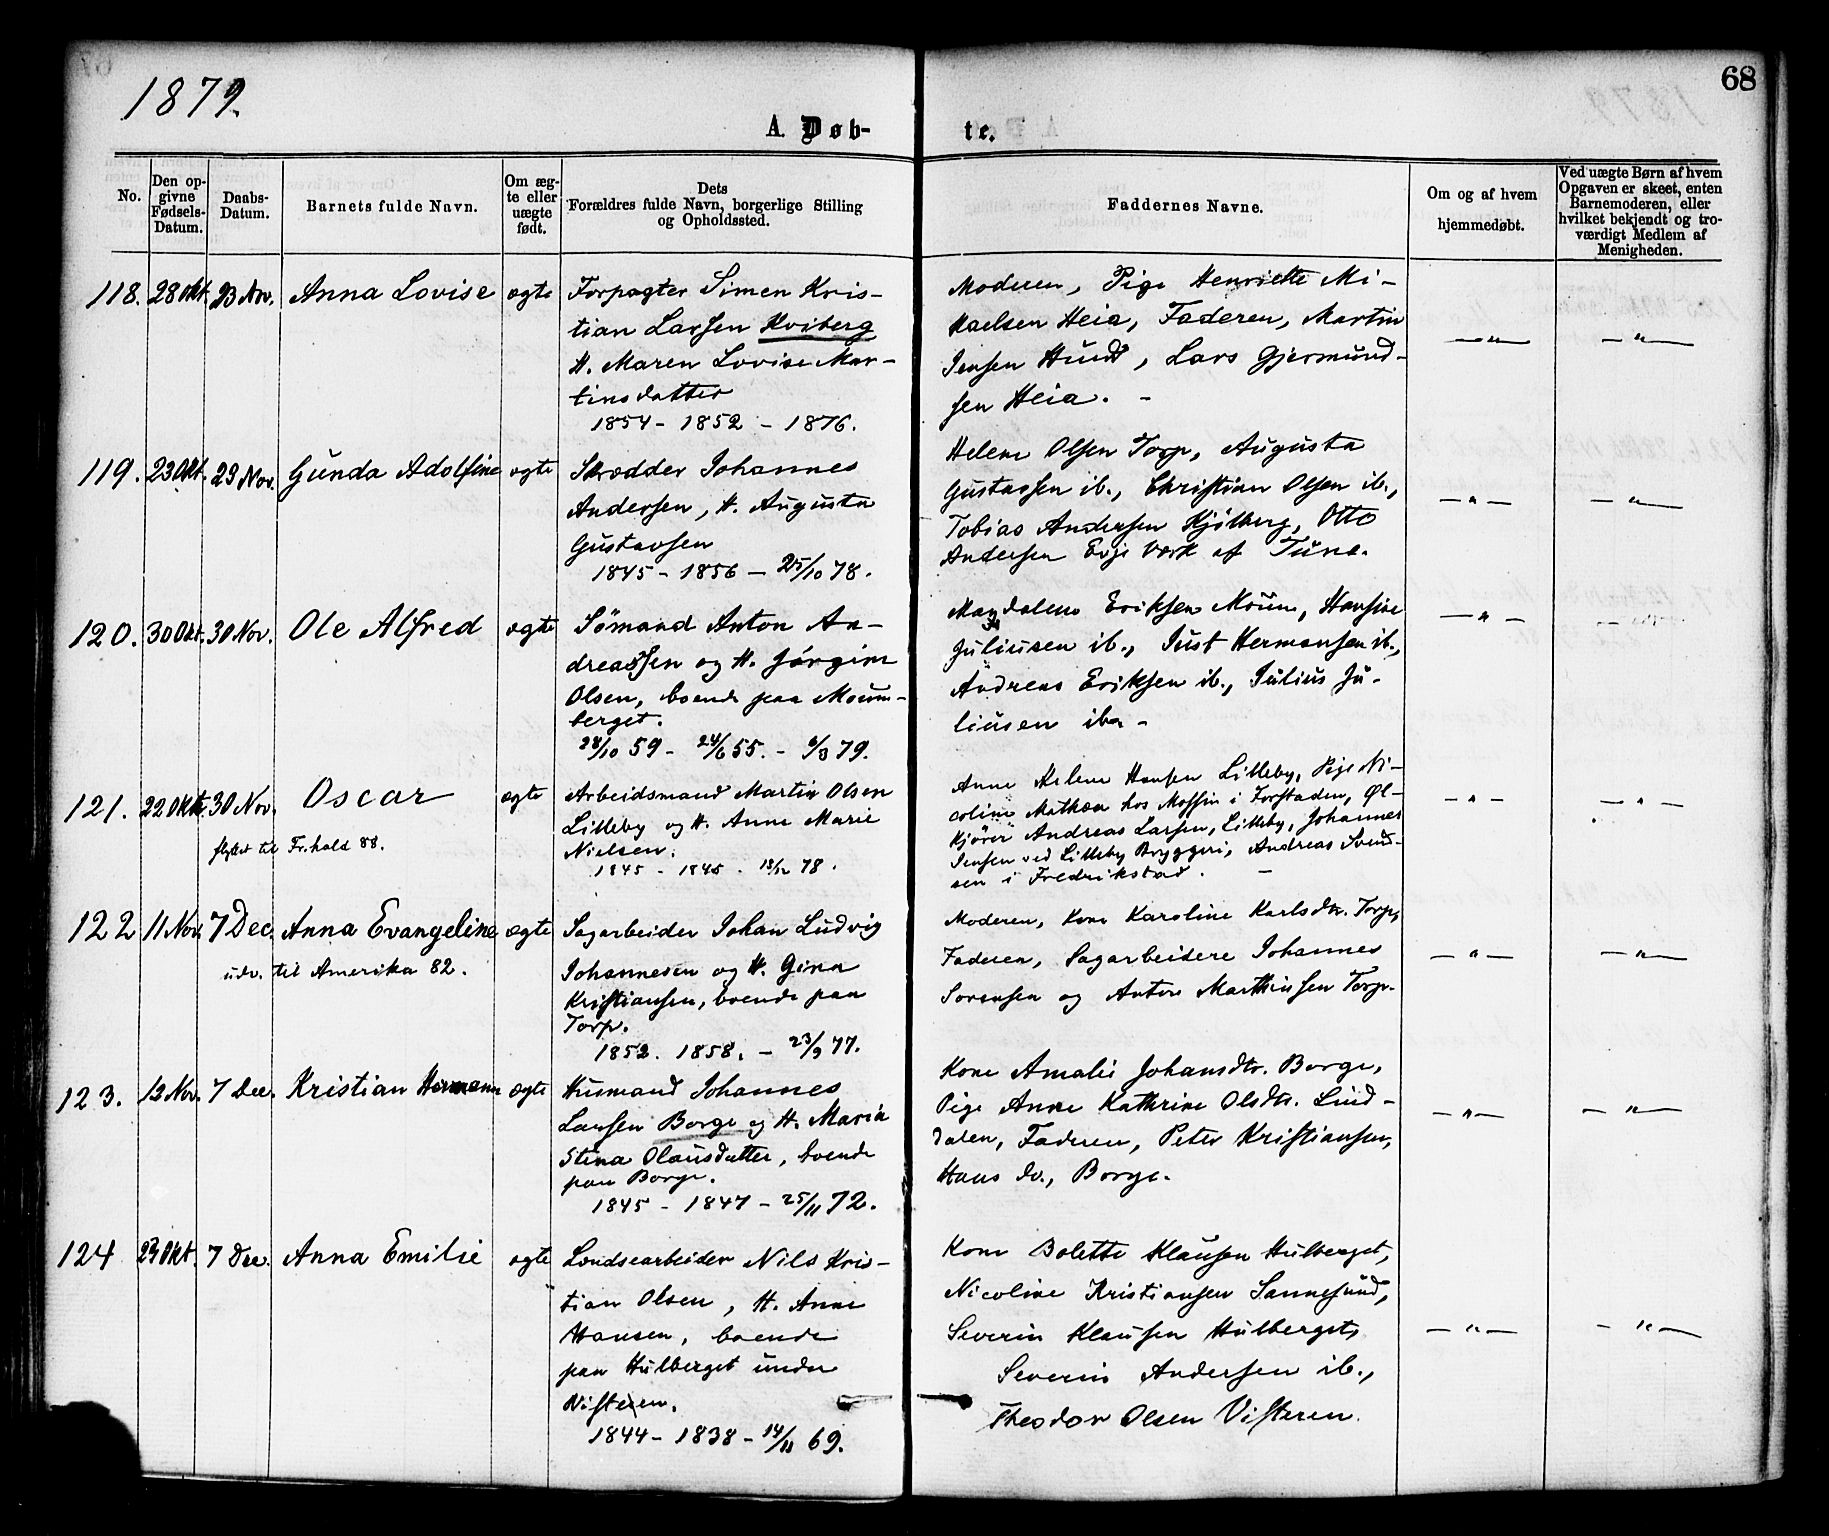 1879.
68
A. Døb-
te.
No.
Den op-
givne
Fødsels-
Datum.
Daabs-
Datum.
Barnets fulde Navn.
Om æg-
te eller
uægte
født.
Dets
Forældres fulde Navn, borgerlige Stilling
og Opholdssted.
Faddernes Navne.
Om og af hvem
hjemmedøbt.
Ved uægte Børn af hvem
Opgaven er skeet, enten
Barnemoderen, eller
hvilket bekjendt og tro-
værdigt Medlem af
Menigheden.
118. 28 Okt. 23 Nov. Anna Lovise ægte
Forpagter Simen Kris-
tian Larsen Kviberg
H. Maren Lovise Mar-
tinsdatter
1854 - 1852 - 1876.
Moderen, Pige Henriette Mi-
kaelsen Heia, Faderen, Martin
Jensen Hund, Lars Gjermund-
sen Heia. -
— " —
— " —
119. 23 Okt. 23 Nov. Gunda Adolfine ægte
Skrædder Johannes
Andersen, H. Augusta
Gustavsen
1845 - 1856 - 25/10 78.
Helene Olsen Torp, Augusta
Gustavsen ib., Christian Olsen ib.,
Tobias Andersen Kjølberg, Otto
Andersen Evje Værk af Tune.
— " —
— " —
120. 30 Okt. 30 Nov. Ole Alfred ægte
Sømand Anton An-
dreassen og H. Jørgine
Olsen, boende paa Moum-
berget.
28/10 59 - 24/6 55. - 6/3 79.
Magdalene Eriksen Moum, Hansine
Juliusen ib., Just Hermansen ib.,
Andreas Eriksen ib., Julius Ju-
liusen ib. -
— " —
121. 22 Okt. 30 Nov. Oscar ægte
flyttet til Fr.hald 88.
Arbeidsmand Martin Olsen
Lilleby og H. Anne Marie
Nielsen.
1845 - 1845 - 18/12 78.
Anne Helene Hansen Lilleby, Pige Ni-
coline hos Mossin i Forstaden, Øl-
kjører Andreas Larsen, Lilleby, Johannes
Jensen ved Lilleby Bryggeri, Andreas Svend-
sen i Fredrikstad. -
— " —
— " —
122 11 Nov. 7 Dec. Anna Evangeline ægte
udv. til Amerika 82.
Sagarbeider Johan Ludvig
Johannesen og H. Gina
Kristiansen, boende paa
Torp.
1852. 1858. - 23/9 77.
Moderen, Kone Karoline Karlsdtr. Torp,
Faderen, Sagarbeidere Johannes
Sorensen og Anton Marthinsen Torp.
— " —
— " —
123. 12 Nov. 7 Dec. Kristian Hermann ægte
Husmand Johannes
Larsen Borge og H. Maria
Stina Olausdatter, boende
paa Borge.
1845 - 1847 - 25/11 72.
Kone Amalie Johansdtr. Borge,
Pige Anne Kathrine Olsdtr. Lind-
dalen, Faderen, Peter Kristiansen,
Hans do., Borge.
— " —
— " —
124 23 Okt. 7 Dec. Anna Emilie ægte
Londsearbeider Nils Kris-
tian Olsen, H. Anne
Hansen, boende
paa Hulberget under
Visteren.
1844 - 1838 - 14/11 69.
Kone Bolette Klausen Hulberget,
Nicoline Kristiansen Sannesund,
Severin Klausen Hulberget,
Severin Andersen ib.,
Theodor Olsen Visteren.
— " —
— " —